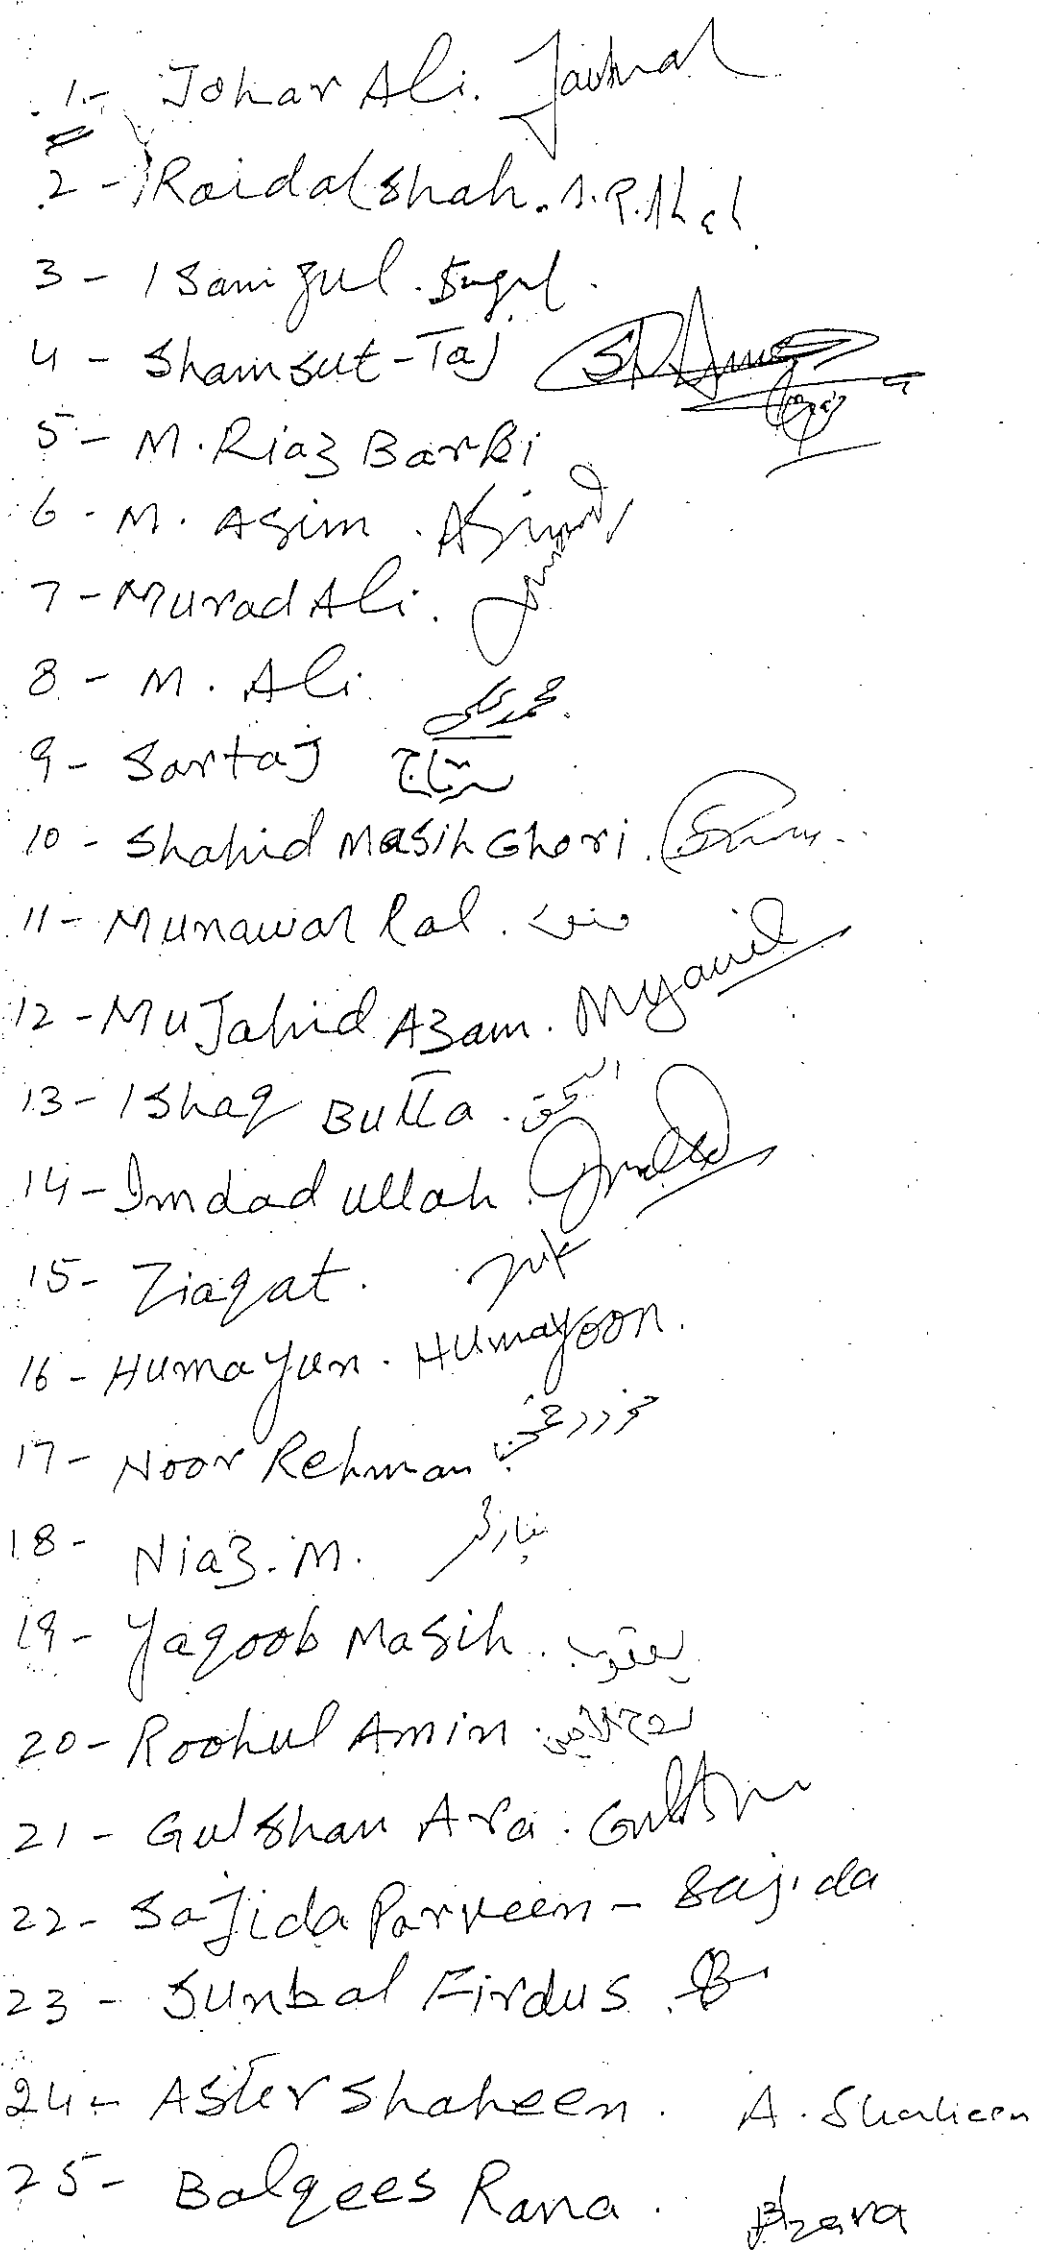 1- Johar Ali.
2- Raidal Shah. S.R.Shah
3- Isani gul.
4- Shamsut-Taj
5- M. Riaz Barki
6- M. Asim. Asim
7- Murad Ali.
8- M. Ali. محمد علی
9- Sartaj سرتاج
10- Shahid Masih Ghori.
11- Munawar Lal.
12- Mujahid Azam.
13- Ishaq Butta. اسحق
14- Imdad ullah.
15- Ziaqat.
16- Humayun. Humayoon.
17- Noor Rehman
18- Niaz. M.
19- Yaqoob Masih. یعقوب
20- Roohul Amin. روح الامین
21- Gulshan Ara.
22- Sajida Parveen - Sajida
23- Sunbal Firdus.
24- Aster Shaheen. A. Shaheen
25- Balqees Rana.